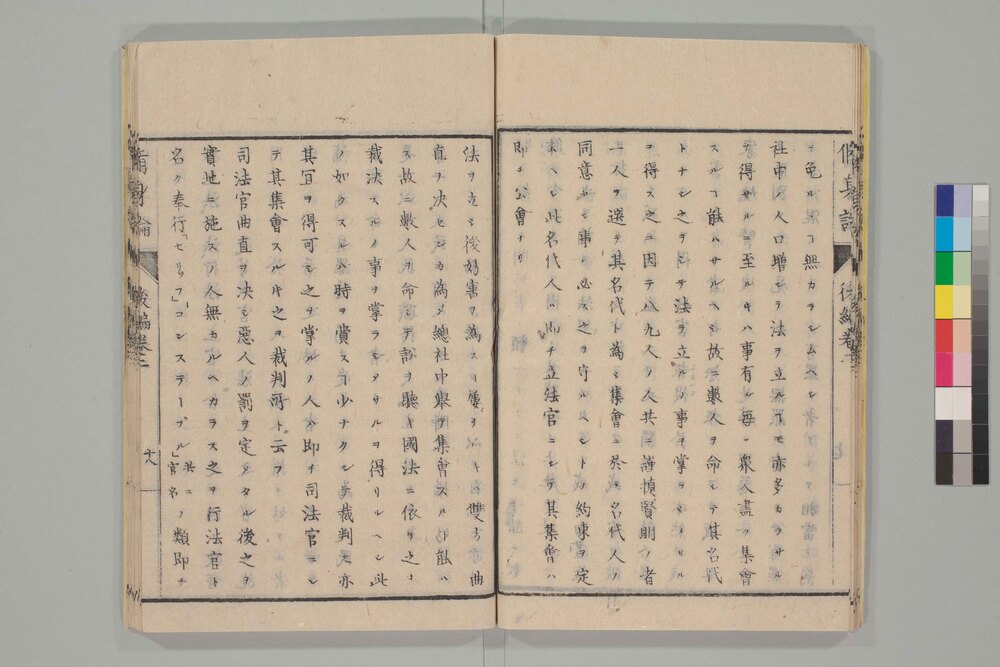 ヲ免ルヿ無カラシムヘシ
社中ノ人口増シテ法ヲ立ルヿモ亦多カラサル
ヲ得サルニ至ルキハ事有ル毎ニ衆人盡ク集會
スルヿ能ハサルヘシ故ニ數人ヲ命シテ其名代
トナシ之ヲシテ法ヲ立ルノ事ヲ掌ラシメサル
ヲ得ス之ニ因テ八九人リ人共ニ謹慎賢明ノ者
一人ヲ選テ其名代ト為シ集會ニ於テ名代人ノ
同意セシ事ハ必ス之ヲ守ルヘシトノ約束ヲ定
ムヘシ此名代人ハ即チ立法官ニシテ其集會ハ
即チ公會ナリ
脩身論 後編卷二
法ヲ立シ後妨害ヲ為スヿ屢 雙方ノ曲
直ヲ决センカ為メ總社中擧テ集會スルヿ能ハ
ス故ニ數人ヲ命シテ訟ヲ聽キ國法ニ依リ之ヲ
裁决スルノ事ヲ掌ラシメサルヲ得サルヘシ此
ノ如クスルハ時ヲ費スヿ少ナクシテ裁判モ亦
其冝ヲ得可シ之ヲ掌ルノ人ハ即チ司法官ニシ
テ其集會スル之ヲ裁判所ト云フ
司法官曲直ヲ决シ惡人ノ罰ヲ定メタル後之ヲ
實地ニ施スノ人無カルヘカラス之ヲ行法官ト
名ク奉行「セリッフ」「コンステーブル」共ニ官名ノ類即チ
脩身論 後編卷二 十八